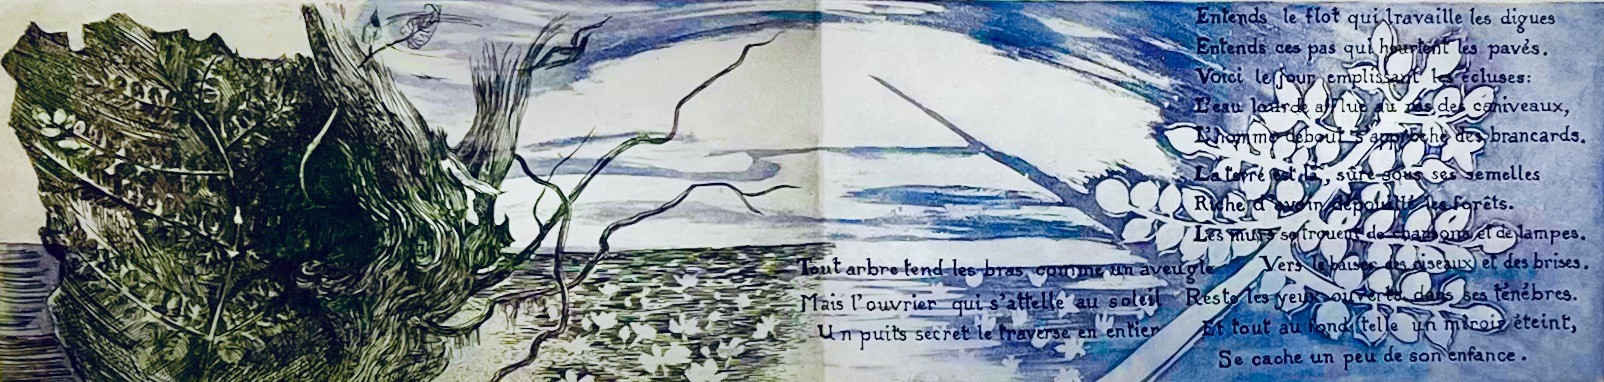 Entends le flot qui travaille les digues
Entends ces pas qui heurtent les pavés.
Voici le jour emplissant les écluses:
L'eau lourde afflue au ras des caniveaux,
L'homme debout s'approche des brancards.
La terre est là, sûre sous ses semelles
Riche d'avoir dépouillé les forêts.
Les murs se trouent de chansons et de lampes.
Tout arbre tend les bras comme un aveugle Vers le baiser des oiseaux et des brises.
Mais l'ouvrier qui s'attelle au soleil Reste les yeux ouverts dans ses ténèbres.
Un puits secret le traverse en entier Et tout au fond, telle un miroir éteint,
Se cache un peu de son enfance.